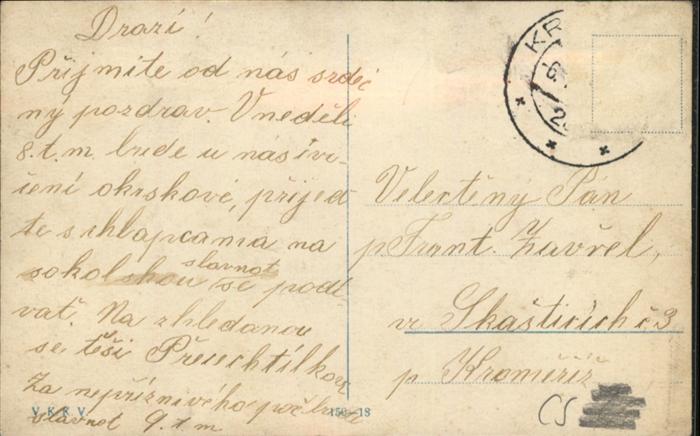 Drazí!
Přijmite od nás srdeč
ný pozdrav. V neděli
8. t. m. bude u nás cvi-
čení okrskové, přijeď
te s chlapcama na
slavnost
sokolskou se podí
vat. Na shledanou
se těší
Za nepříznivého počasí
slavnost 9. t. m.
V.K.K.V. 150-18
KR
Velectěný Pán
p Frant. Zavřel,
ve Skašticích č 3
p Kroměříž
CS